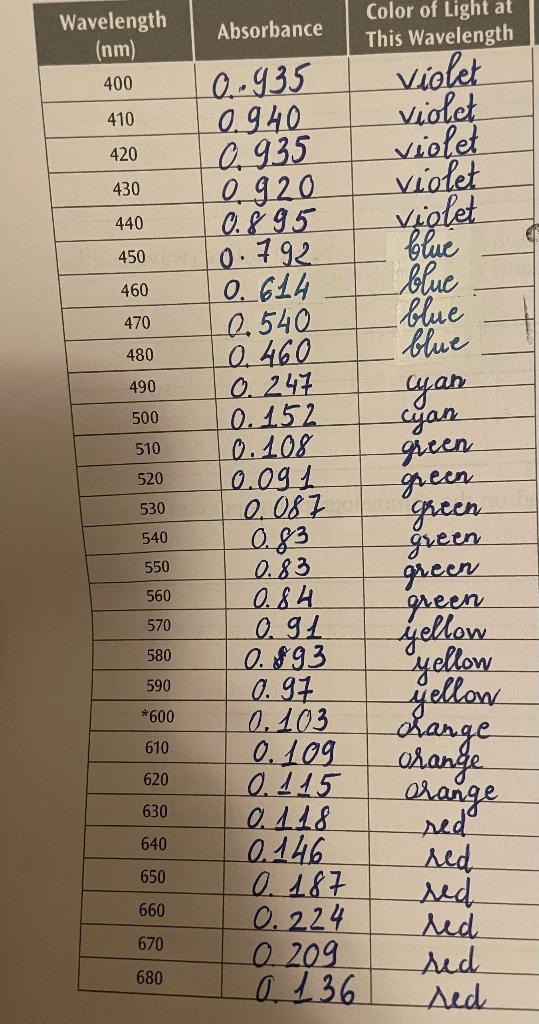 Wavelength (nm) Absorbance Color of Light at This Wavelength
400 0.935 violet
410 0.940 violet
420 0.935 violet
430 0.920 violet
440 0.895 violet
450 0.792 blue
460 0.614 blue
470 0.540 blue
480 0.460 blue
490 0.247 cyan
500 0.152 cyan
510 0.108 green
520 0.091 green
530 0.087 green
540 0.83 green
550 0.83 green
560 0.84 green
570 0.91 yellow
580 0.893 yellow
590 0.97 yellow
*600 0.103 orange
610 0.109 orange
620 0.115 orange
630 0.118 red
640 0.146 red
650 0.187 red
660 0.224 red
670 0.209 red
680 0.136 red